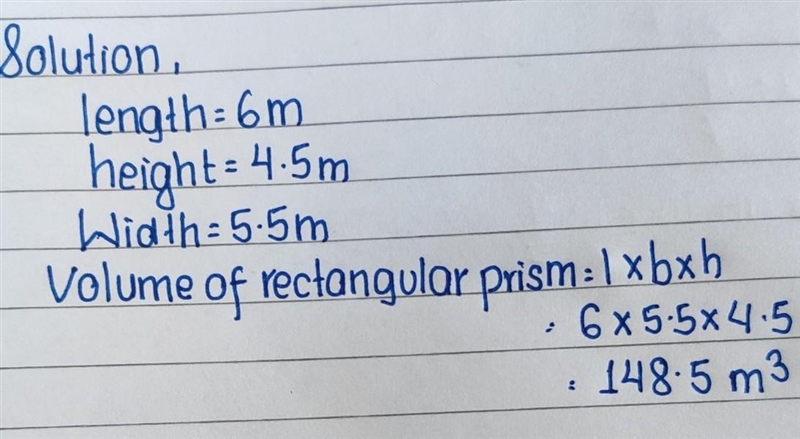 Solution,
length = 6m
height = 4.5m
Width = 5.5m
Volume of rectangular prism = l × b × h
= 6 × 5.5 × 4.5
= 148.5 m³